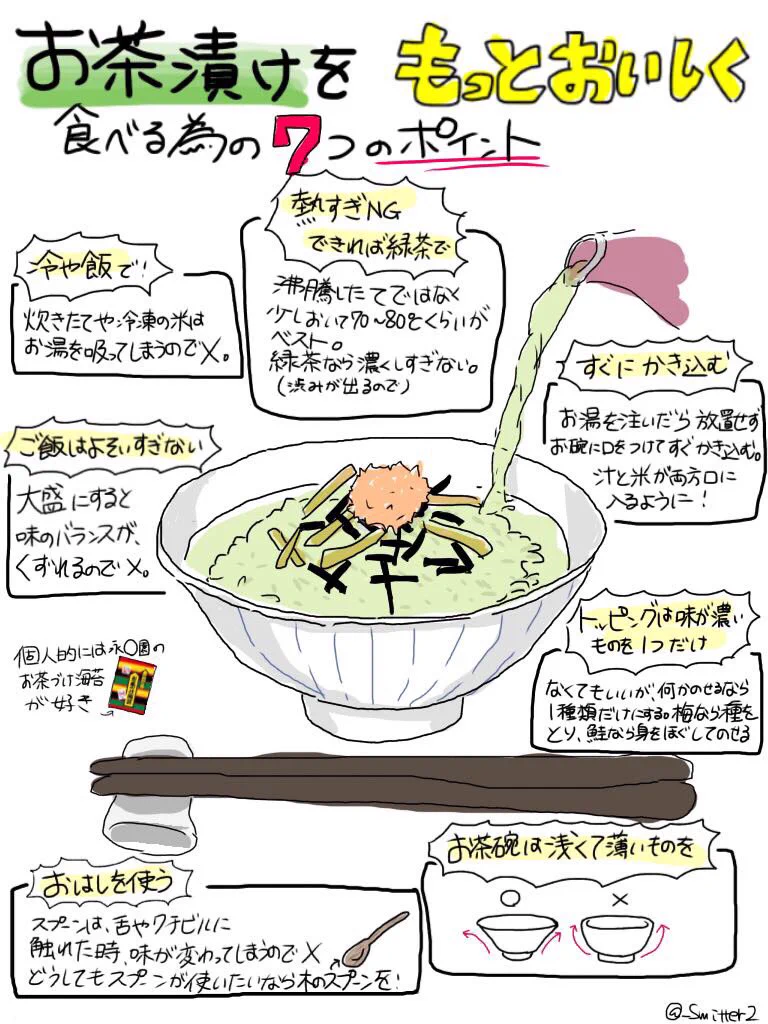 お茶漬けを もっとおいしく
食べる為の7つのポイント
冷や飯で!
炊きたてや冷凍の米は
お湯を吸ってしまうので×。
熱すぎNG
できれば緑茶で
沸騰したてではなく
少しおいて70~80℃くらいが
ベスト。
緑茶なら濃くしすぎない。
(渋みが出るので)
すぐにかき込む
お湯を注いだら放置せず
お碗に口をつけてすぐかき込む。
汁と米が両方口に
入るように!
ご飯はよそいすぎない
大盛にすると
味のバランスが、
くずれるので×。
個人的には永〇園の
お茶づけ海苔
が好き
トッピングは味が濃い
ものを1つだけ
なくてもいいが、何かのせるなら
1種類だけにする。梅なら種を
とり、鮭なら身をほぐしてのせる
おはしを使う
スプーンは、舌やクチビルに
触れた時、味が変わってしまうので×
どうしてもスプーンが使いたいなら木のスプーンを!
お茶碗は浅くて薄いものを
○ ×
@_Smitter2